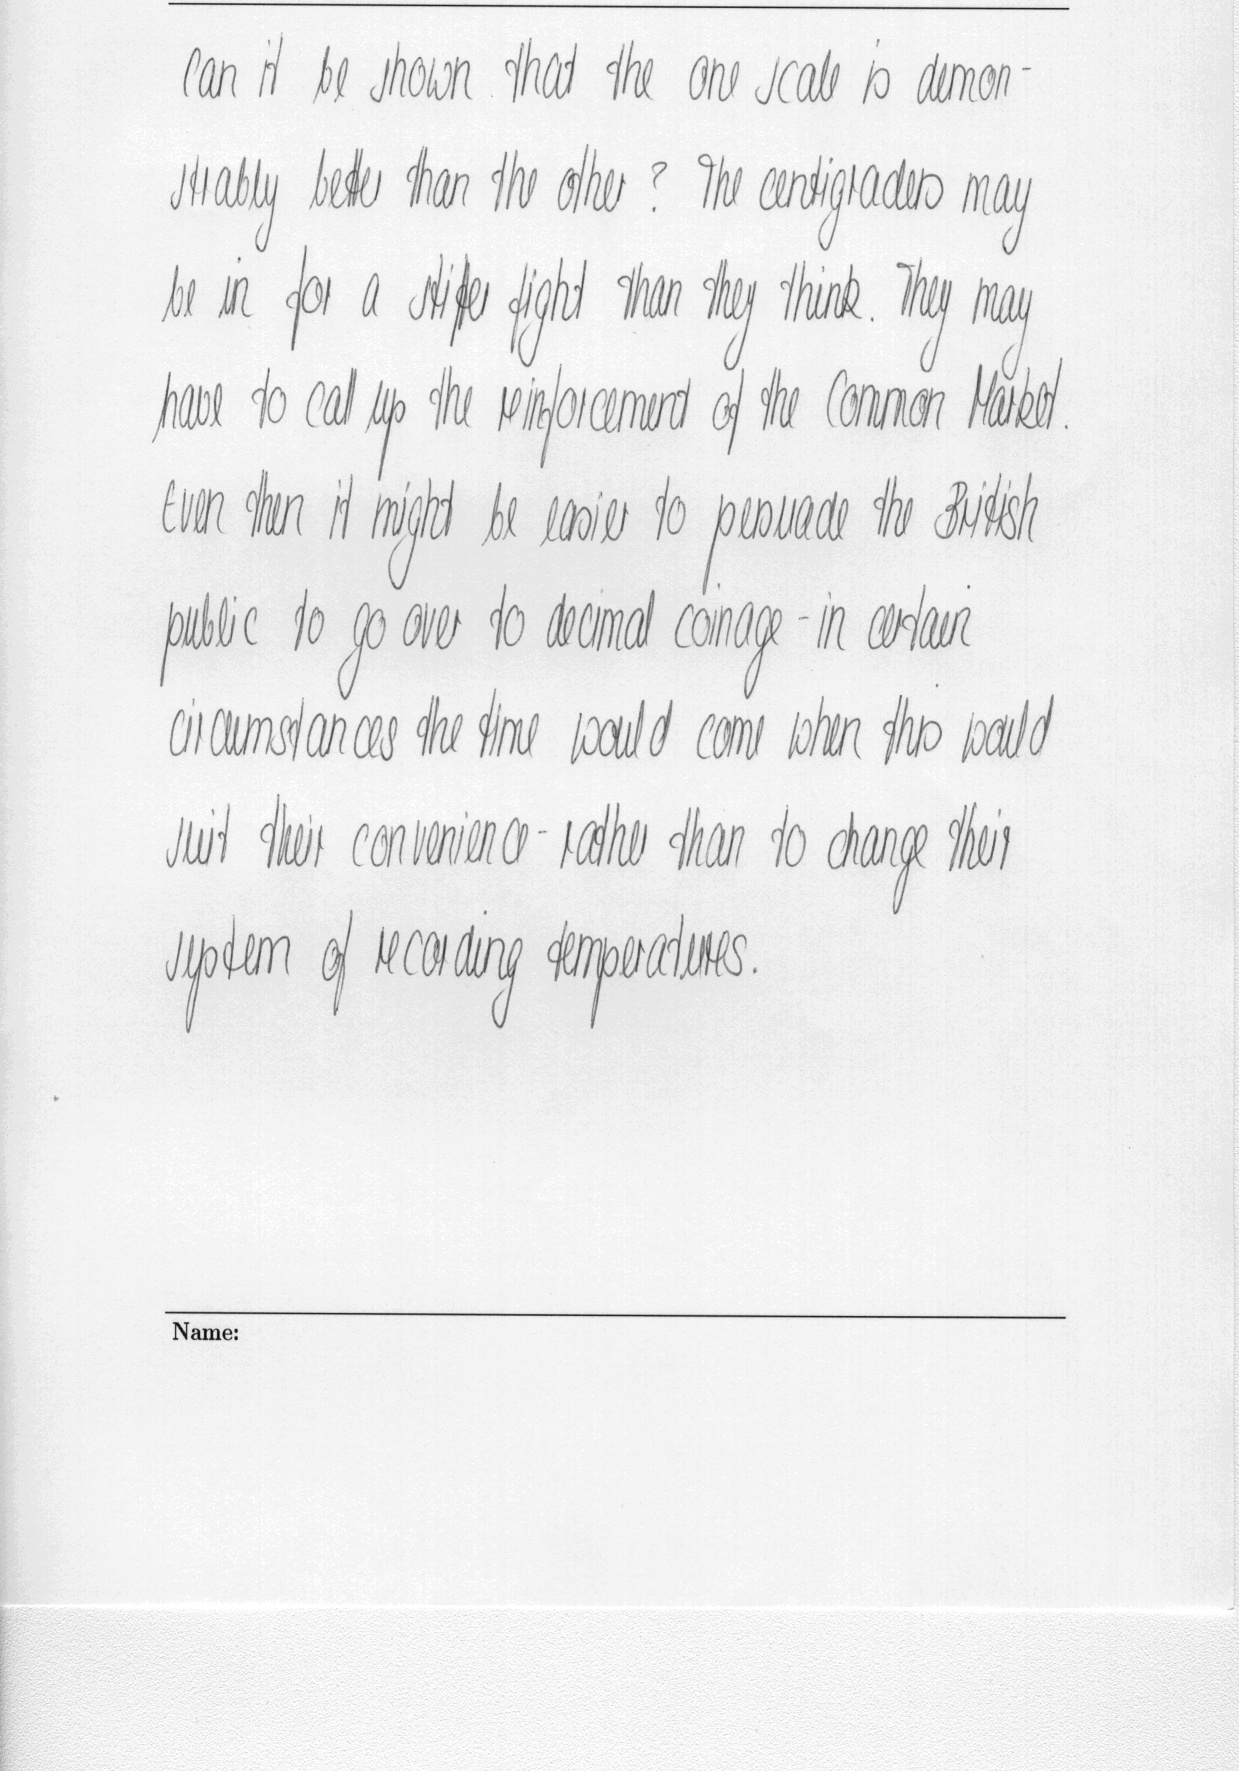 Can it be shown that the one scale is demon-
strably better than the other? The centigraders may
be in for a stiffer fight than they think. They may
have to call up the reinforcement of the Common Market.
Even then it might be easier to persuade the British
public to go over to decimal coinage - in certain
circumstances the time would come when this would
suit their convenience - rather than to change their
system of recording temperatures.
Name: